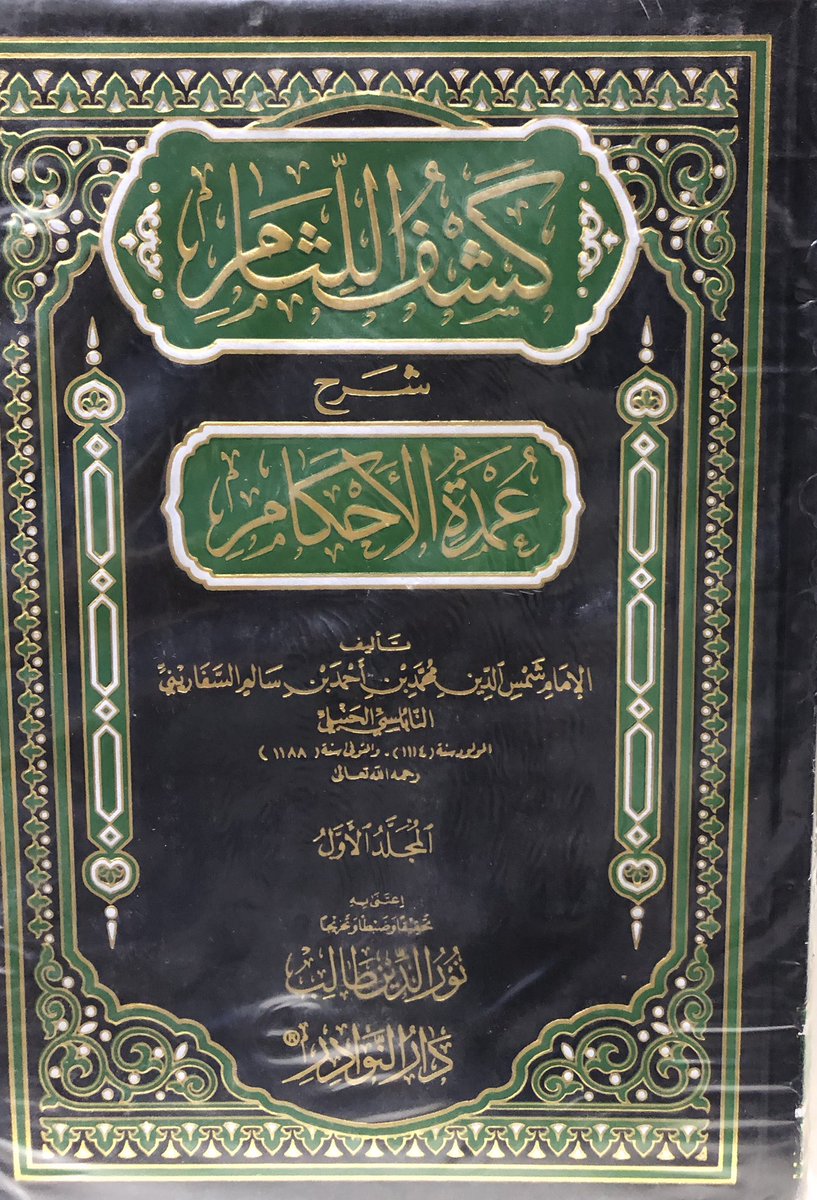 كَشْفُ اللِّثَامِ
شَرْح
عُمْدَةُ الأَحْكَامِ
تَأليف
الإمَامِ شَمْسِ الدِّينِ مُحَمَّدِ بْنِ أَحْمَدَ بْنِ سَالِمِ السَّفَارِينِيِّ
النَّابُلسِيِّ الحَنْبَلِيِّ
المولود سنة (١١١٤) . والمتوفى سنة (١١٨٨)
رحمه الله تعالى
المُجَلَّدُ الأَوَّلُ
اعتَنَى بِهِ
تَحْقِيقًا وَضَبْطًا وَتَخْرِيجًا
نُورُ الدِّين طَالِب
دَارُ النَّوَادِر